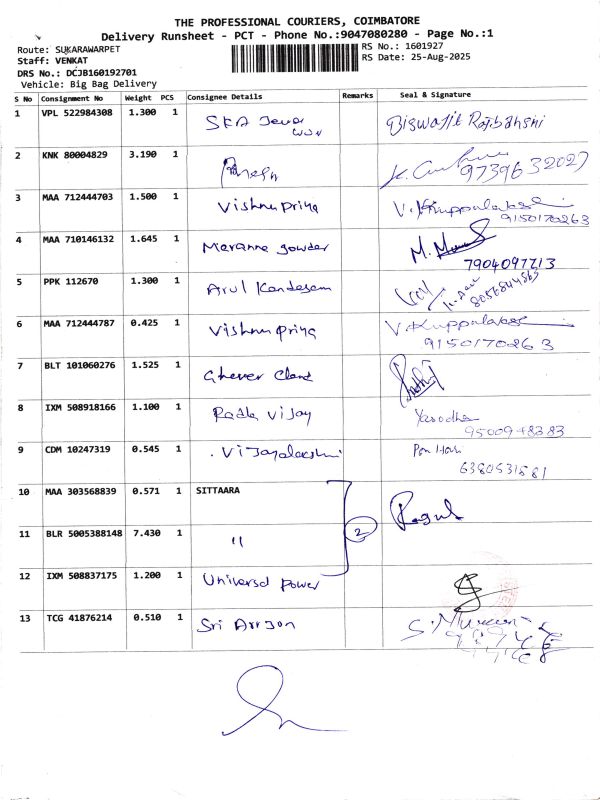 THE PROFESSIONAL COURIERS, COIMBATORE
Delivery Runsheet - PCT - Phone No.:9047080280 - Page No.:1
Route: SUKARAWARPET
Staff: VENKAT
DRS No.: DCJB160192701
Vehicle: Big Bag Delivery
RS No.: 1601927
RS Date: 25-Aug-2025
S No Consignment No Weight PCS Consignee Details Remarks Seal & Signature
1 VPL 522984308 1.300 1 SKA
2 KNK 80004829 3.190 1 9739632027
3 MAA 712444703 1.500 1 Vishnu priya V. Kuppulakshmi
9150170263
4 MAA 710146132 1.645 1 Maranna gowder M.
7904097713
5 PPK 112670 1.300 1 Arul Kandasam
8056844565
6 MAA 712444787 0.425 1 Vishnu priya V. Kuppulakshmi
9150170263
7 BLT 101060276 1.525 1 Ghever Chand
8 IXM 508918166 1.100 1 Radha Vijay Yasodha
9500948383
9 CDM 10247319 0.545 1 Vijayalakshmi
6380531581
10 MAA 303568839 0.571 1 SITTAARA
2 Ragul
11 BLR 5005388148 7.430 1 "
12 IXM 508837175 1.200 1 Universal power
13 TCG 41876214 0.510 1 Sri Arjan